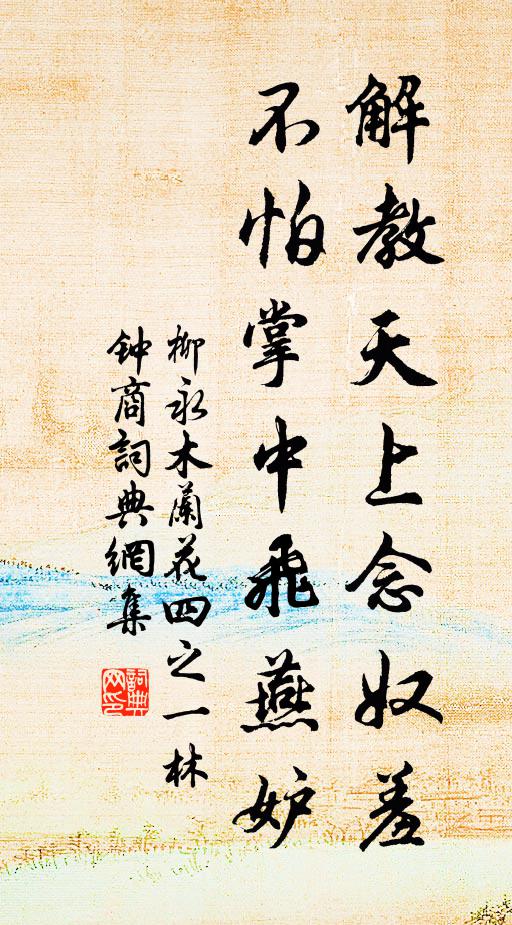 解教天上念奴羞
不怕掌中飛燕妒
柳永木蘭花四之一林
鈡商詞典網集
詞典
网印